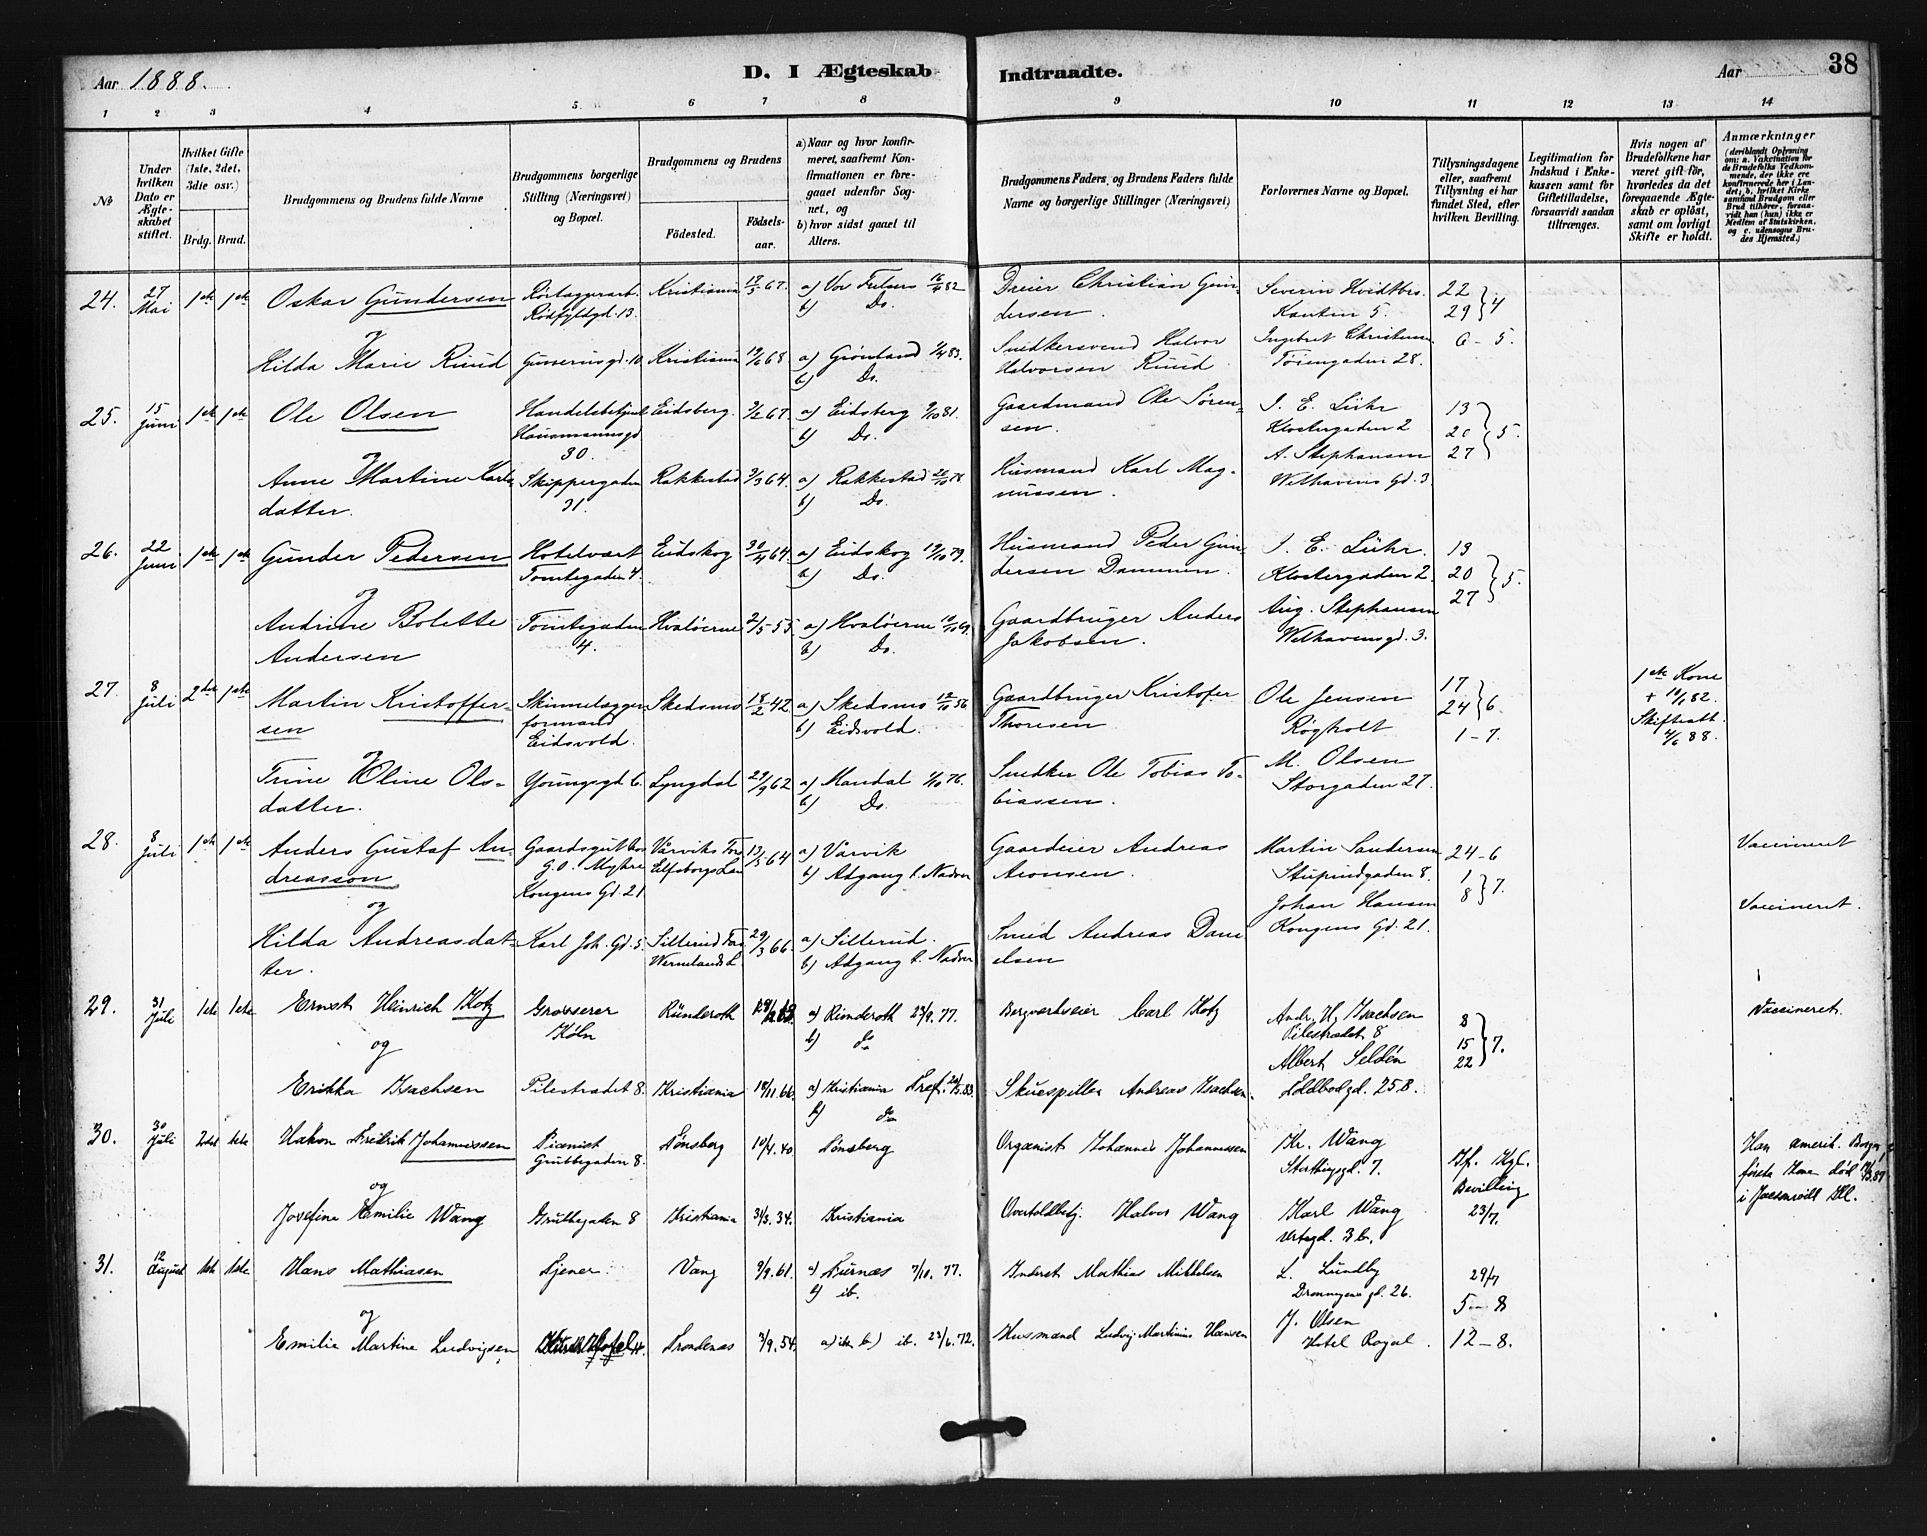 Aar 1888.
D. I Ægteskab Indtraadte.
Aar 38
1 2 3 4 5. 6 7 8 9 10 11 12 13 14
No
Under hvilken Dato er Ægteskabet stiftet.
Hvilket Gifte (1ste, 2det, 3die osv.)
Brdg. Brud.
Brudgommens og Brudens fulde Navne
Brudgommens borgerlige Stilling (Næringsvei) og Bopæl.
Brudgommens og Brudens
Födested.
Födselsaar.
a) Naar og hvor konfirmeret, saafremt Konfirmationen er foregaaet udenfor Sognet, og
b) hvor sidst gaaet til Alters.
Brudgommens Faders og Brudens Faders fulde Navne og borgerlige Stillinger (Næringsvei)
Forlovernes Navne og Bopæl.
Tillysningsdagene eller, saafremt Tillysning ei har fundet Sted, efter hvilken Bevilling.
Legitimation for Indskud i Enkekassen samt for Giftetilladelse, forsaavidt saadan tiltrænges.
Hvis nogen af Brudefolkene har været gift før, hvorledes da det foregaaende Ægteskab er oplöst, samt om lovligt Skifte er holdt.
Anmærkninger
24. 27 Mai 1ste 1ste Oskar Gundersen
Rödfyldgd. 13.
Kristiania 67.
a) Vor Frelsers 82
b) Do.
Dreier Christian Gundersen.
Severin Hvidtbro.
22 29 } 4
og
Hilda Marie Ruud
Gunerusgd. 10 Kristiania 68
a) Grønland 83.
b) Do.
Snedkersvend Halvor Halvorsen Ruud.
Ingebret Christensen
Töiengaden 28.
6 - 5.
25. 15 Juni 1ste 1ste Ole Olsen
Handelsbetjent
Hausmannsgd 30.
Eidsberg. 67
a) Eidsberg 9/10 81.
b) Do.
Gaardmand Ole Sørensen.
J. E. Lühr
Klostergaden 2
13 20 27 } 5.
og
Anne Martine Karlsdatter.
Skippergaden 31.
Rakkestad 64.
a) Rakkestad 78.
b) Do.
Husmand Karl Magnussen.
A. Stephansen
Welhavens Gd. 3.
26. 22 Juni 1ste 1ste Gunder Pedersen
Hotelvært
Tomtegaden 4.
Eidskog 30/4 64.
a) Eidskog 19/10 79.
b) Do.
Husmand Peder Gundersen Dammen.
J. E. Lühr.
Klostergaden 2.
13 20 27 } 5.
og
Andrine Bolette Andersen
Tomtegaden 4.
Hvaløerne 2/5 55
a) Hvaløerne 69.
b) Do.
Gaardbruger Anders Jakobsen.
Aug. Stephansen
Welhavensgd. 3.
27. 8 Juli 2den 1ste Martin Kristoffersen
formand
Eidsvold.
Skedsmo 18/2 42
a) Skedsmo 12/10 56
b) Eidsvold.
Gaardbruger Kristofer Thoresen
Ole Jensen
Røgholt
17 24 } 6.
1 - 7.
1ste Kone
+ 82.
Skifteatt.
4/6 88.
og
Trine Oline Olsdatter.
Youngsgd 6. Lyngdal 29/9 62
a) Mandal 1/10 76.
b) Do.
Snedker Ole Tobias Tobiassen.
M. Olsen
Storgaden 27.
28. 8 Juli 1ste 1ste Anders Gustaf Andreasson
Gaardsgut hos
Kongens Gd. 21
Vårviks
Elfsborgs Län
13/5 64
a) Vårvik
b) Adgang t. Nadver
Gaardeier Andreas Aronsen.
Martin Sandersen
Stupindgaden 8.
24 - 6
1 8 } 7.
Vaccineret
og
Hilda Andreasdatter.
Karl Joh. Gd. 5
Sillerud
Wermelands L
29/3 66.
a) Sillerud.
b) Adgang t. Nadver
Smed Andreas Danielsen
Johan Hansen
Kongens Gd. 21.
Vaccineret.
29. 31 Juli 1ste 1ste Ernst Heinrich Kotz
Grosserer
Köln
Ründeroth
a) Ründeroth 23/9. 77.
b) do
Bergværkseier Carl Kotz
Andr. H. Isachsen
Pilestrædet 8
8 15 22 } 7.
Vaccineret.
og
Erikka Isachsen
Pilestrædet 8. Kristiania 18/11. 66.
a) Kristiania Tref. 83.
b) do
Skuespiller Andreas Isachsen.
Albert Seldén
Toldbodgd. 25 B.
30. 30 Juli 2det 1ste Hakon Fredrik Johannessen
Pianist
Grubbegaden 8.
Tönsberg 10/4. 40 Tönsberg
Organist Johannes Johannessen
Kr. Wang
Storthingsgd. 7.
Ifl. Kgl. Bevilling 23/7.
Han amerik. Borger,
første Kone død 87
og
Josefine Emilie Wang
Grubbegaden 8 Kristiania 31/3. 34. Kristiania
Overtoldbetj. Halvor Wang
Karl Wang
31. 12 August 1ste 1ste Hans Mathiasen
Tjener. Vang 9/9. 61.
a) Furnæs 7/10. 77.
b) ib.
Inderst Mathias Mikkelsen
L. Lundby
Dronningens gd. 26.
29/7
5 - 8
og
Emilie Martine Ludvigsen
Trondenæs 3/9. 54. ib. 23/6. 72.
Husmand Ludvig Martinius Hansen
J. Olsen
Hotel Royal.
12 - 8.